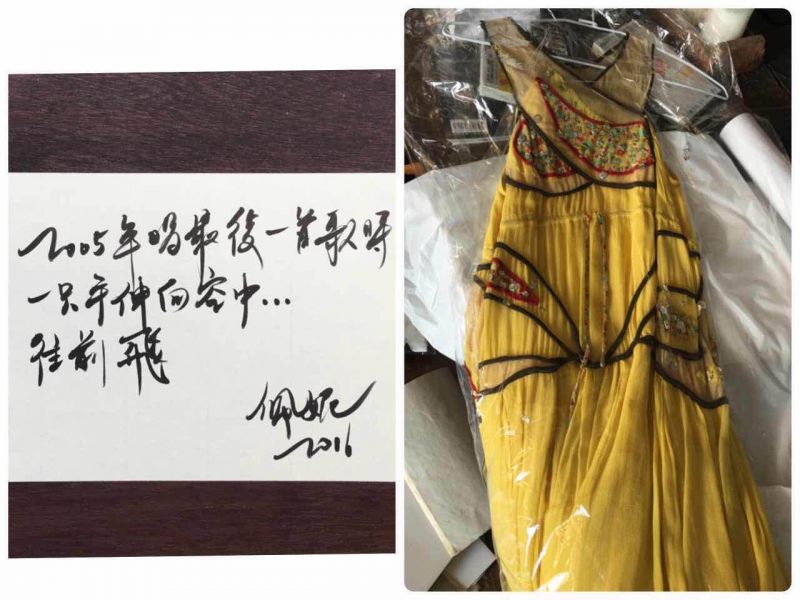 2005年唱最後一首歌時
一只手伸向空中...
往前飛
佩妮
2016